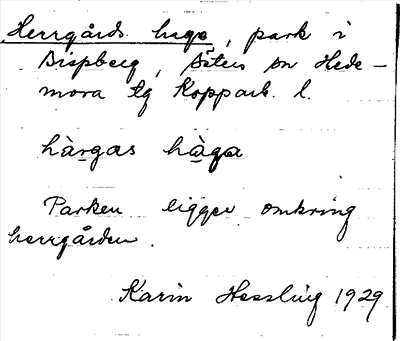 Herrgårds haga, park i
Bispberg, Säters sn Hede-
mora tg Kopparb. l.
hàrgas hàga
Parken ligger omkring
herrgården.
Karin Hessling 1929